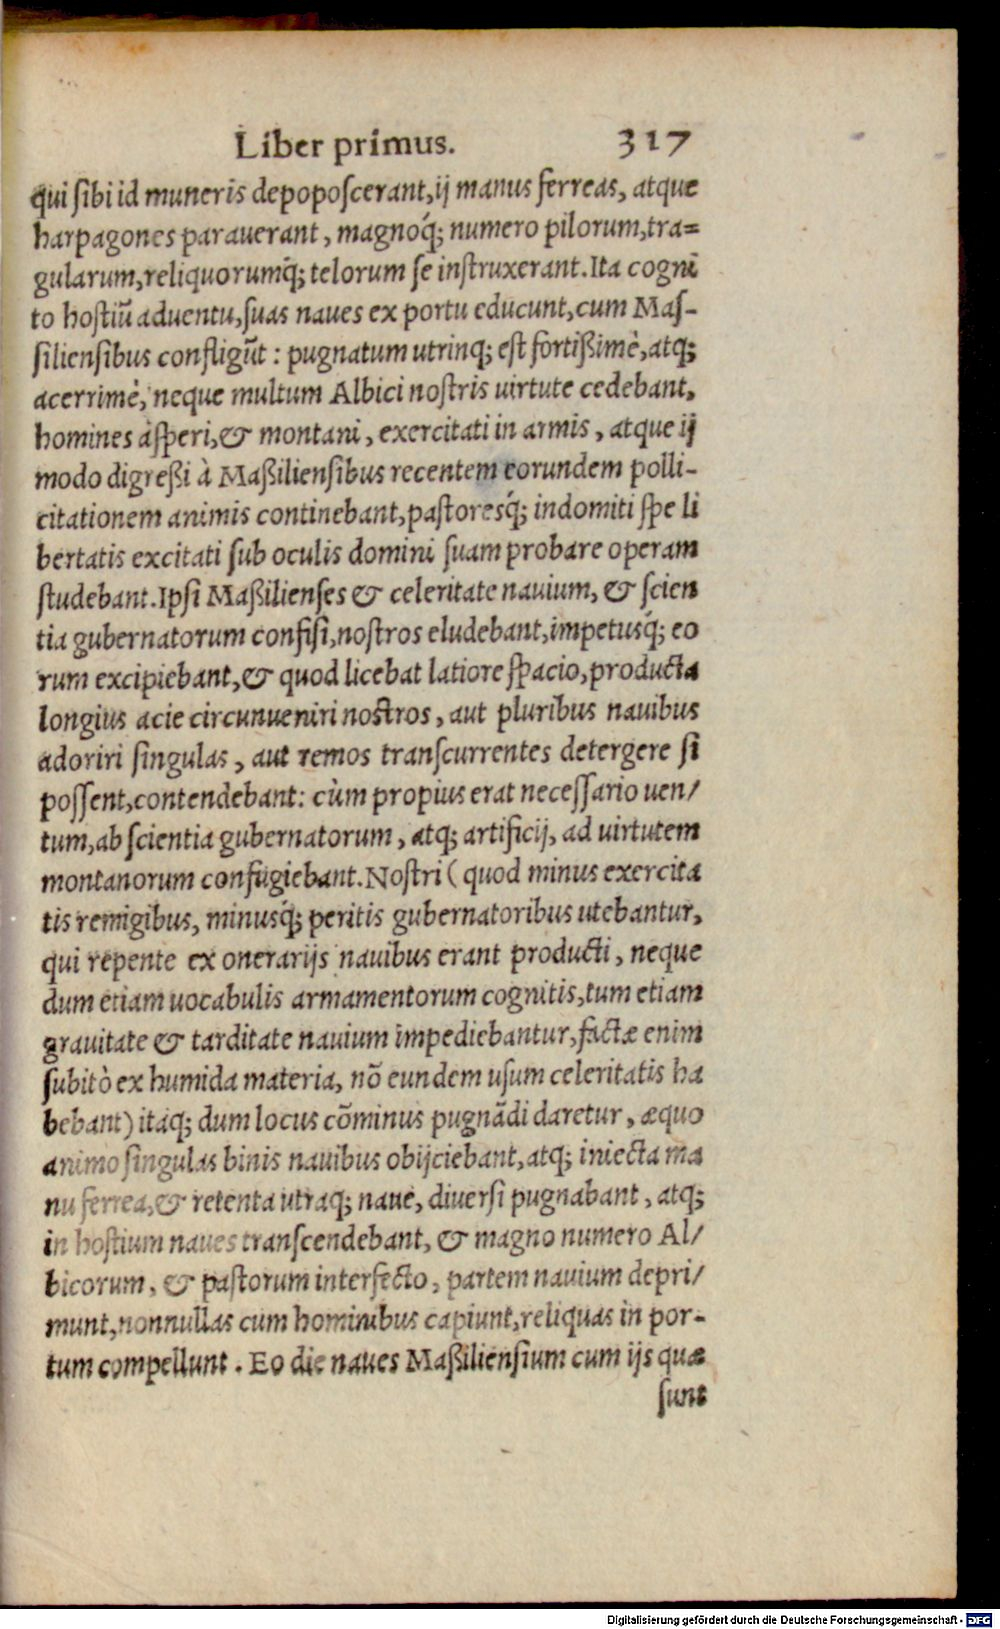 Liber primus. 317
qui ſibi id muneris depopoſcerant, ij manus ferreas, atque
harpagones parauerant, magnoq́; numero pilorum, tra=
gularum, reliquorumq́; telorum ſe inſtruxerant. Ita cogni
to hoſtiũ aduentu, ſuas naues ex portu educunt, cum Maſ-
ſilienſibus confligũt: pugnatum utrinq; est fortißimè, atq;
acerrimè, neque multum Albici noſtris uirtute cedebant,
homines aſperi, & montani, exercitati in armis, atque ij
modo digreßi à Maßilienſibus recentem eorundem polli-
citationem animis continebant, paſtoresq́; indomiti ſpe li
bertatis excitati ſub oculis domini ſuam probare operam
ſtudebant. Ipſi Maßilienſes & celeritate nauium, & ſcien
tia gubernatorum confiſi, noſtros eludebant, impetusq́; eo
rum excipiebant, & quod licebat latiore ſpacio, producta
longius acie circunueniri nostros, aut pluribus nauibus
adoriri ſingulas, aut remos tranſcurrentes detergere ſi
poſſent, contendebant: cùm propius erat neceſſario uen/
tum, ab ſcientia gubernatorum, atq; artificij, ad uirtutem
montanorum confugiebant. Noſtri (quod minus exercita
tis remigibus, minusq́; peritis gubernatoribus utebantur,
qui repente ex onerarijs nauibus erant producti, neque
dum etiam uocabulis armamentorum cognitis, tum etiam
grauitate & tarditate nauium impediebantur, factæ enim
ſubitò ex humida materia, nõ eundem uſum celeritatis ha
bebant) itaq; dum locus cõminus pugnãdi daretur, æquo
animo ſingulas binis nauibus obijciebant, atq; iniecta ma
nu ferrea, & retenta utraq; naue, diuerſi pugnabant, atq;
in hoſtium naues tranſcendebant, & magno numero Al/
bicorum, & paſtorum interfecto, partem nauium depri/
munt, nonnullas cum hominibus capiunt, reliquas in por-
tum compellunt. Eo die naues Maßilienſium cum ijs quæ
ſunt
Digitalisierung gefördert durch die Deutsche Forschungsgemeinschaft - DFG